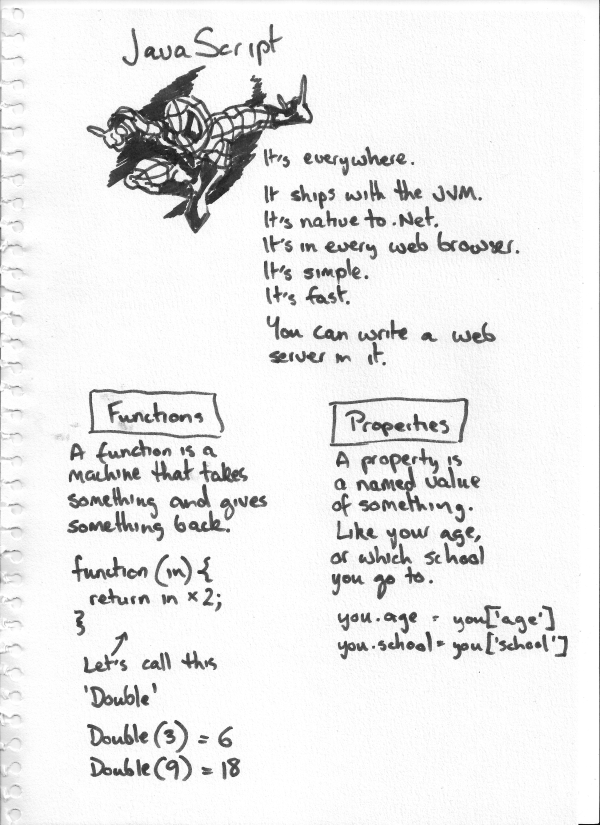 JavaScript
It's everywhere.
It ships with the JVM.
It's native to .Net.
It's in every web browser.
It's simple.
It's fast.
You can write a web
server in it.
Functions
A function is a
machine that takes
something and gives
something back.
function (in) {
return in × 2;
}
Let's call this
'Double'
Double(3) = 6
Double(9) = 18
Properties
A property is
a named value
of something.
Like your age,
or which school
you go to.
you.age = you['age']
you.school = you['school']